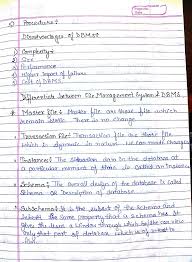 Procedure :
Disadvantages of DBMS :
1) Complexity
2) Size
3) Performance
4) Higher Impact of failure
5) Cost of DBMS
Differentiate between File Management System & DBMS
* Master File : Master file are those file which
remain static. There is no change
* Transaction File : Transaction file are those file
which is dynamic in nature we can made changes
* Instance : The data in the database at
a particular moment of time is called an instance
* Schema : The overall design of the database is called
Schema OR Description of database
* Subschema : It is the subset of the schema and
inherit the same property that a schema has it
gives the users a window through which he can view
only that part of database which is of